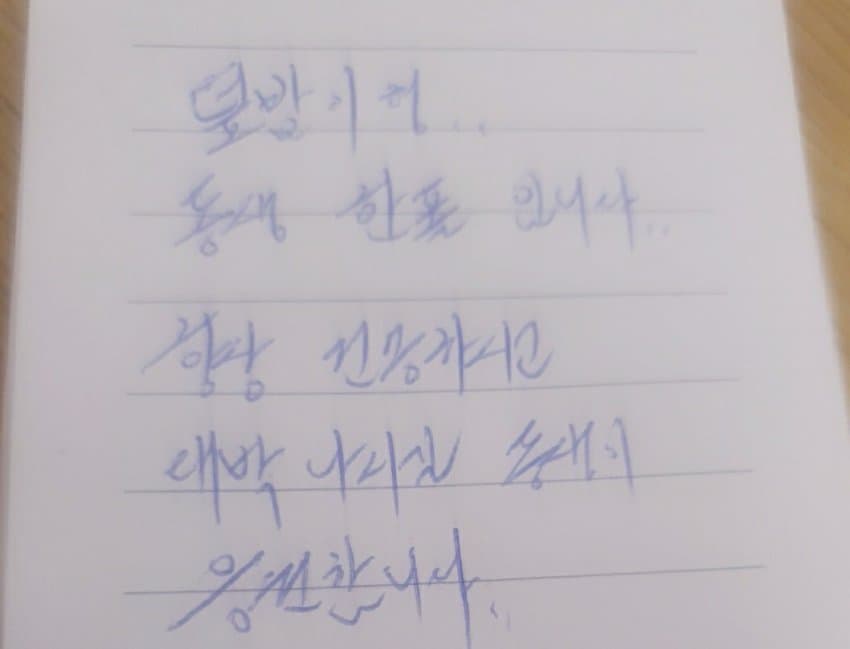 동생 한표 입니다..
항상 건강하시고
대박 나시길 동생이
응원합니다..